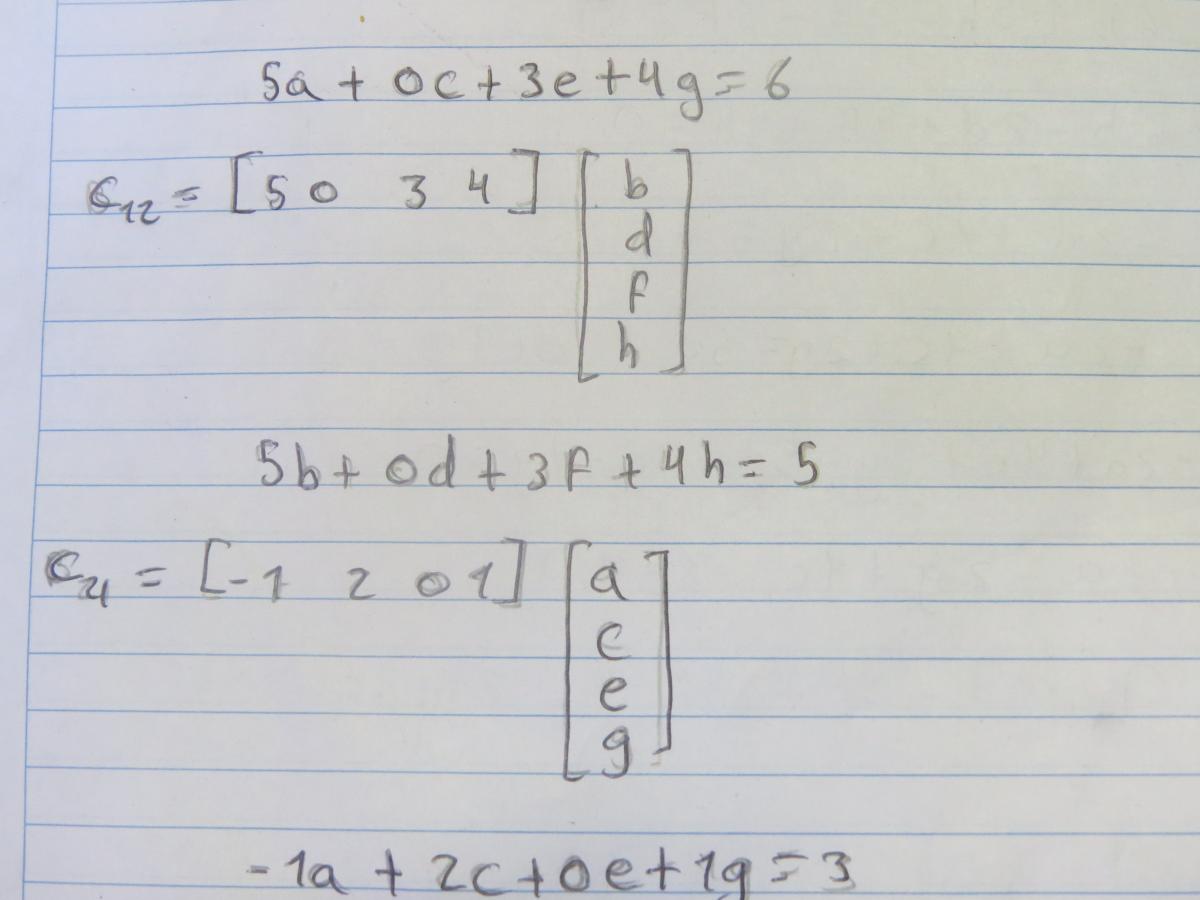 5a + 0c + 3e + 4g = 6
c12 = [5 0 3 4] [b
d
f
h]
5b + 0d + 3f + 4h = 5
c21 = [-1 2 0 1] [a
c
e
g]
-1a + 2c + 0e + 1g = 3